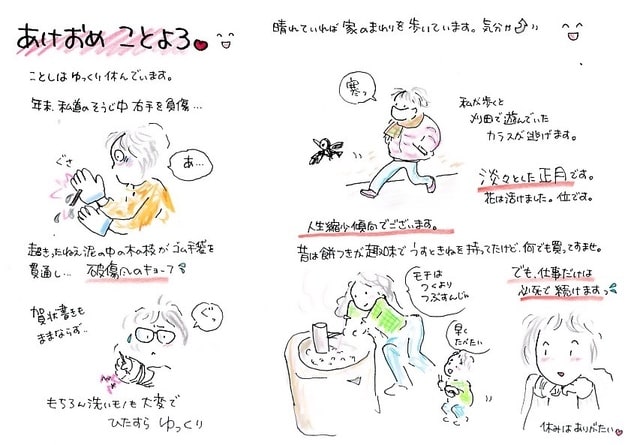 あけおめ ことよろ
ことしは ゆっくり休んでいます。
年末、私道のそうじ中 右手を負傷…
ぐさ
あ…
起きったねえ泥の中の木の枝が ゴム手袋を
貫通し… 破傷風のキョーフ
賀状書きも
ままならず…
ぐっ
もちろん洗いモノも 大変で
ひたすら ゆっくり
晴れていれば 家のまわりを 歩いています。気分が
寒っ
私が歩くと
刈田で遊んでいた
カラスが逃げます。
淡々とした正月です。
花は活けました。位です。
人生縮少傾向でございます。
昔は餅つきが趣味で うすときねを持ってたけど、何でも買ってすませ。
モチは
つくより
つぶすんじゃ
早く
たべたい
でも、仕事だけは
必死で続けますっ
休みはありがたい